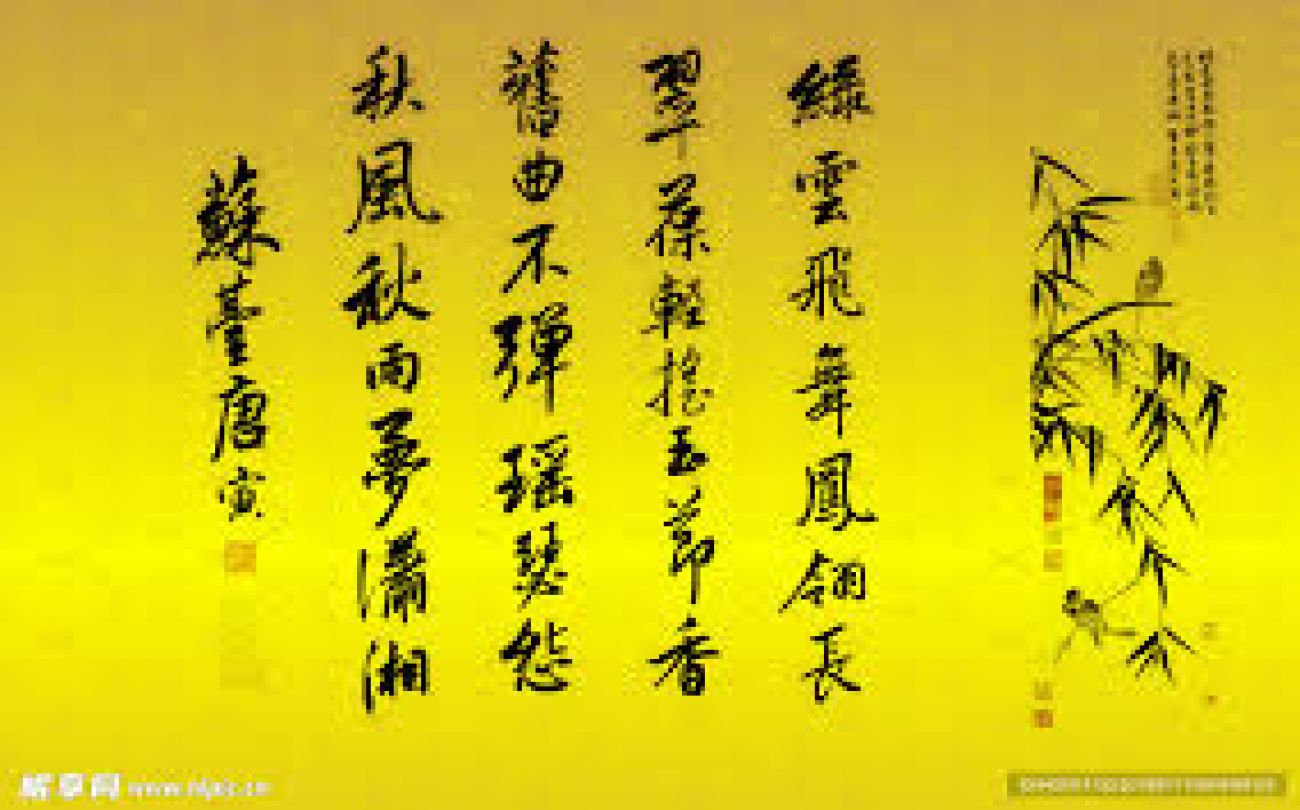 綠雲飛舞鳳翎長
翠葆輕搖玉節香
舊曲不彈瑶瑟怨
秋風秋雨夢瀟湘
蘇臺唐寅
昵享网 www.nipic.cn